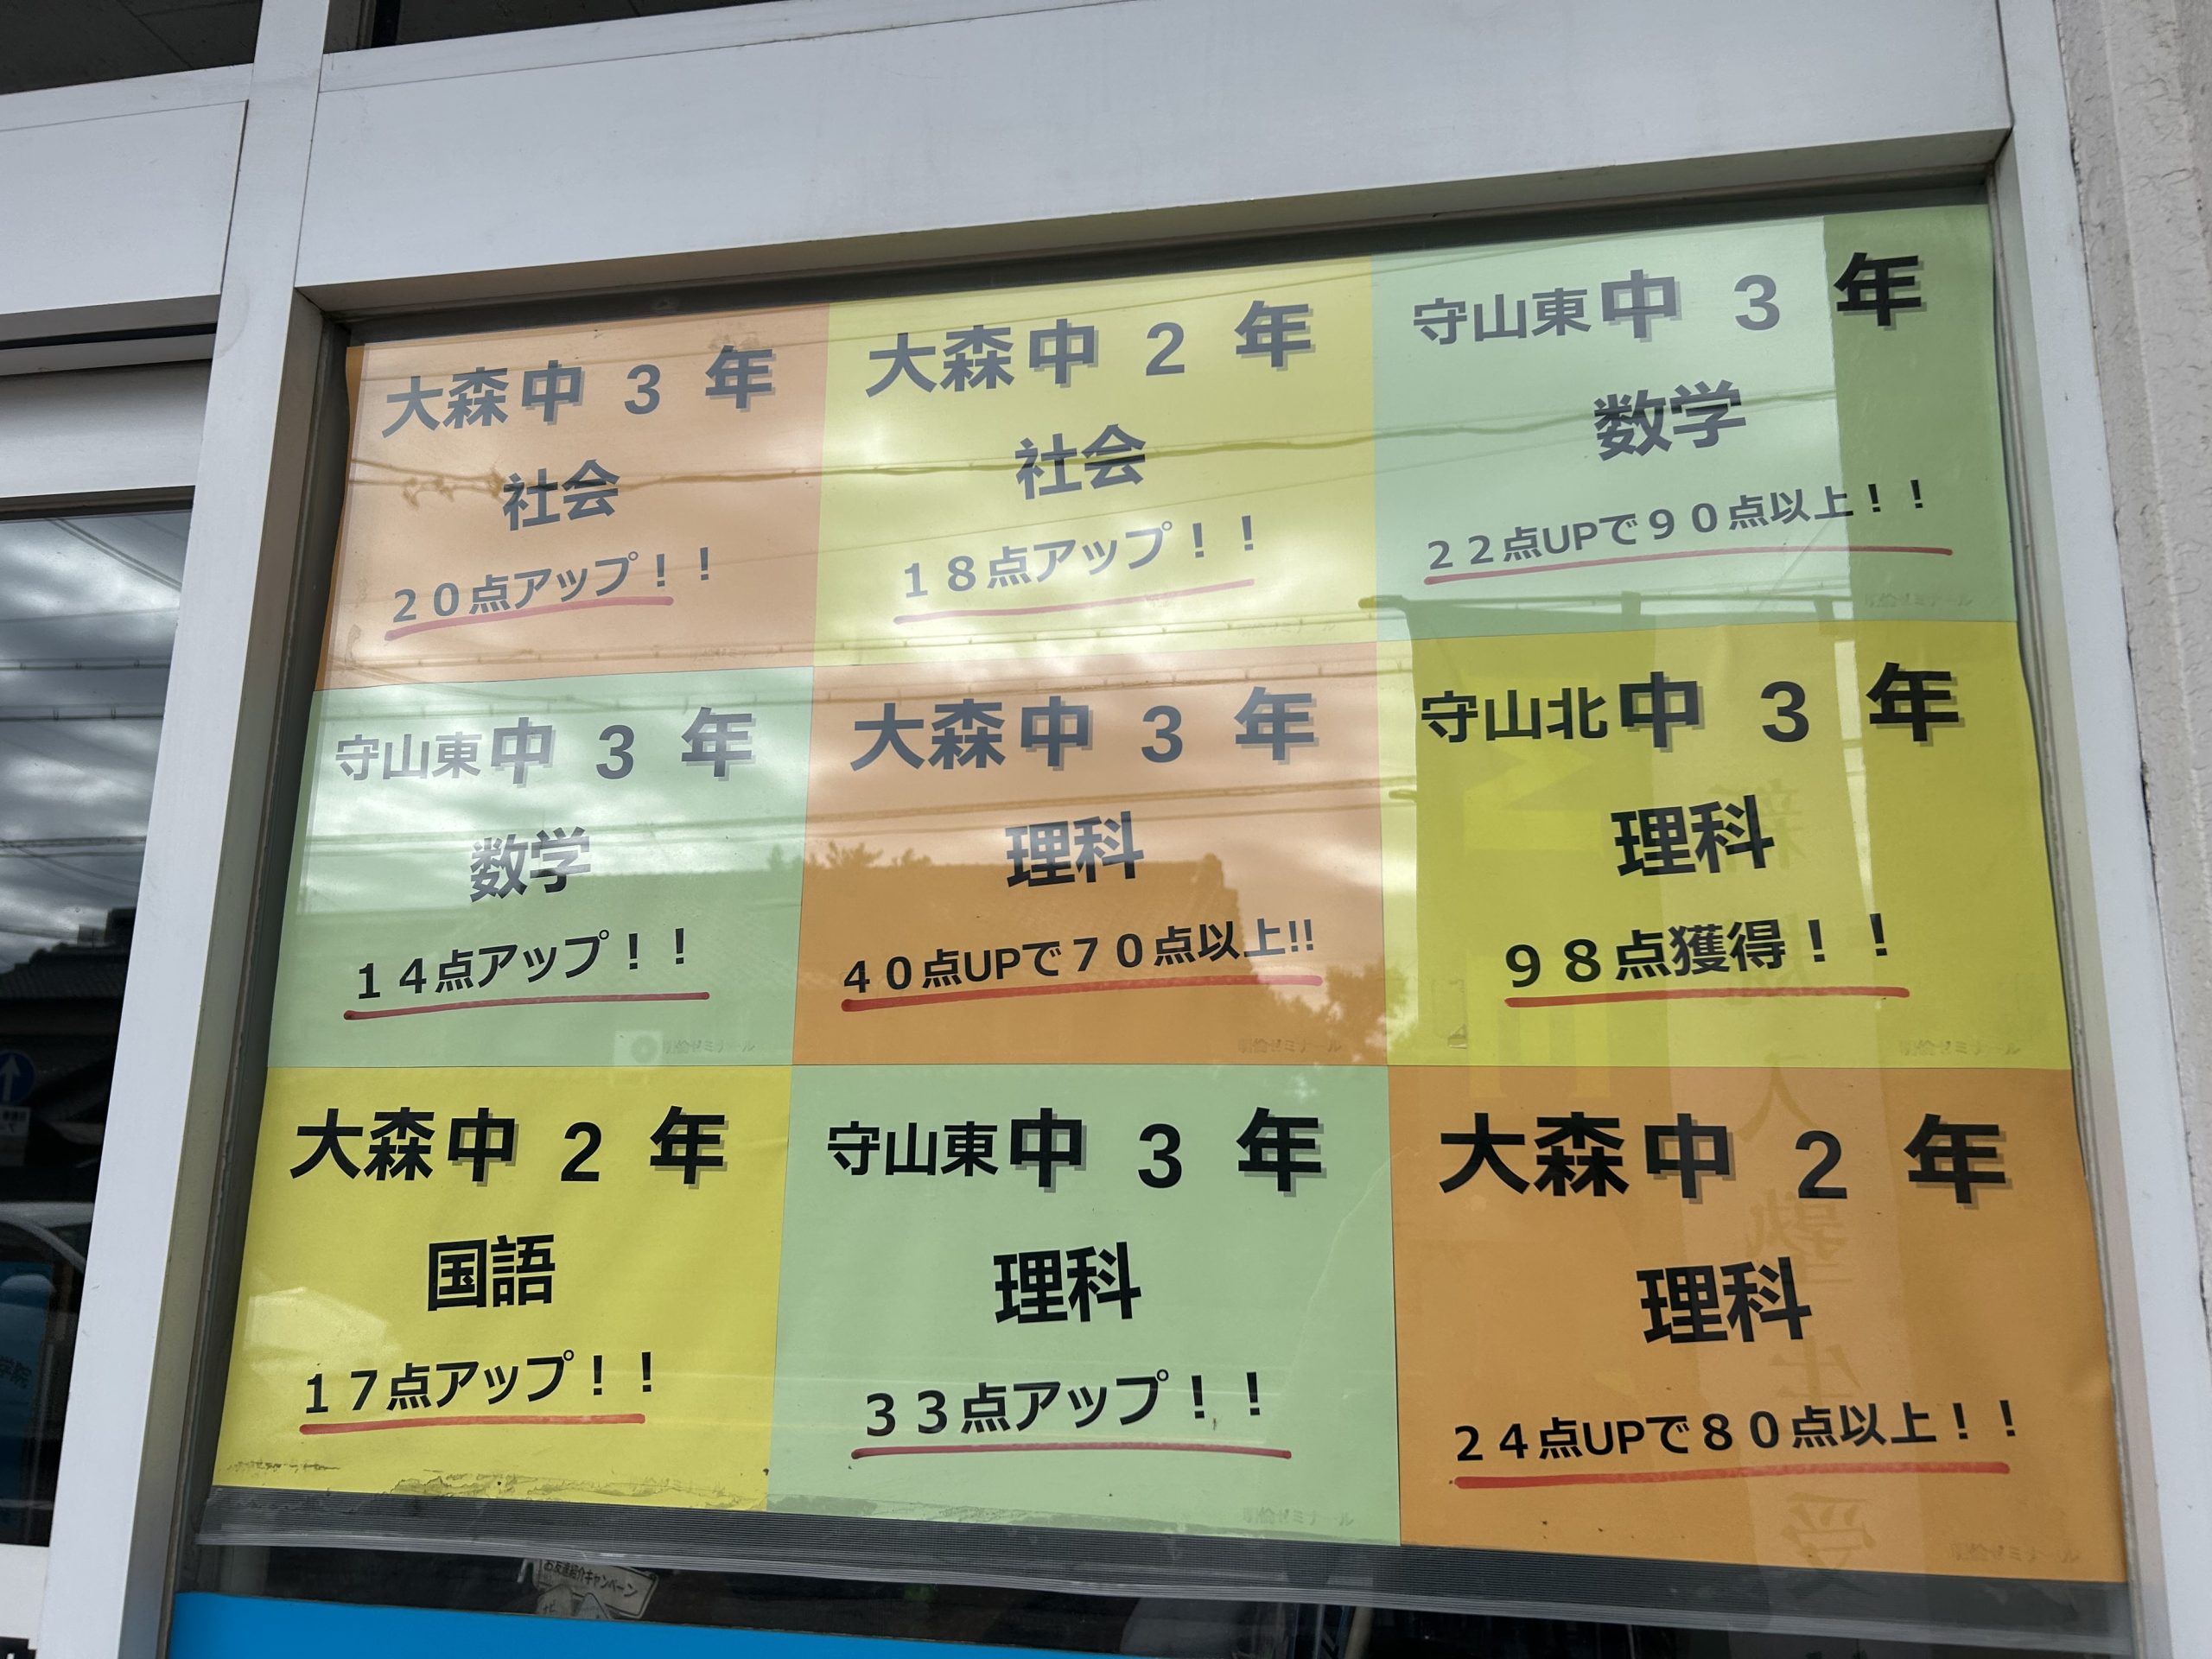 大森中 3 年
社会
20点アップ！！
大森中 2 年
社会
18点アップ！！
守山東中 3 年
数学
22点UPで90点以上！！
守山東中 3 年
数学
14点アップ！！
大森中 3 年
理科
40点UPで70点以上!!
守山北中 3 年
理科
98点獲得！！
大森中 2 年
国語
17点アップ！！
守山東中 3 年
理科
33点アップ！！
大森中 2 年
理科
24点UPで80点以上！！
お友達紹介キャンペーン